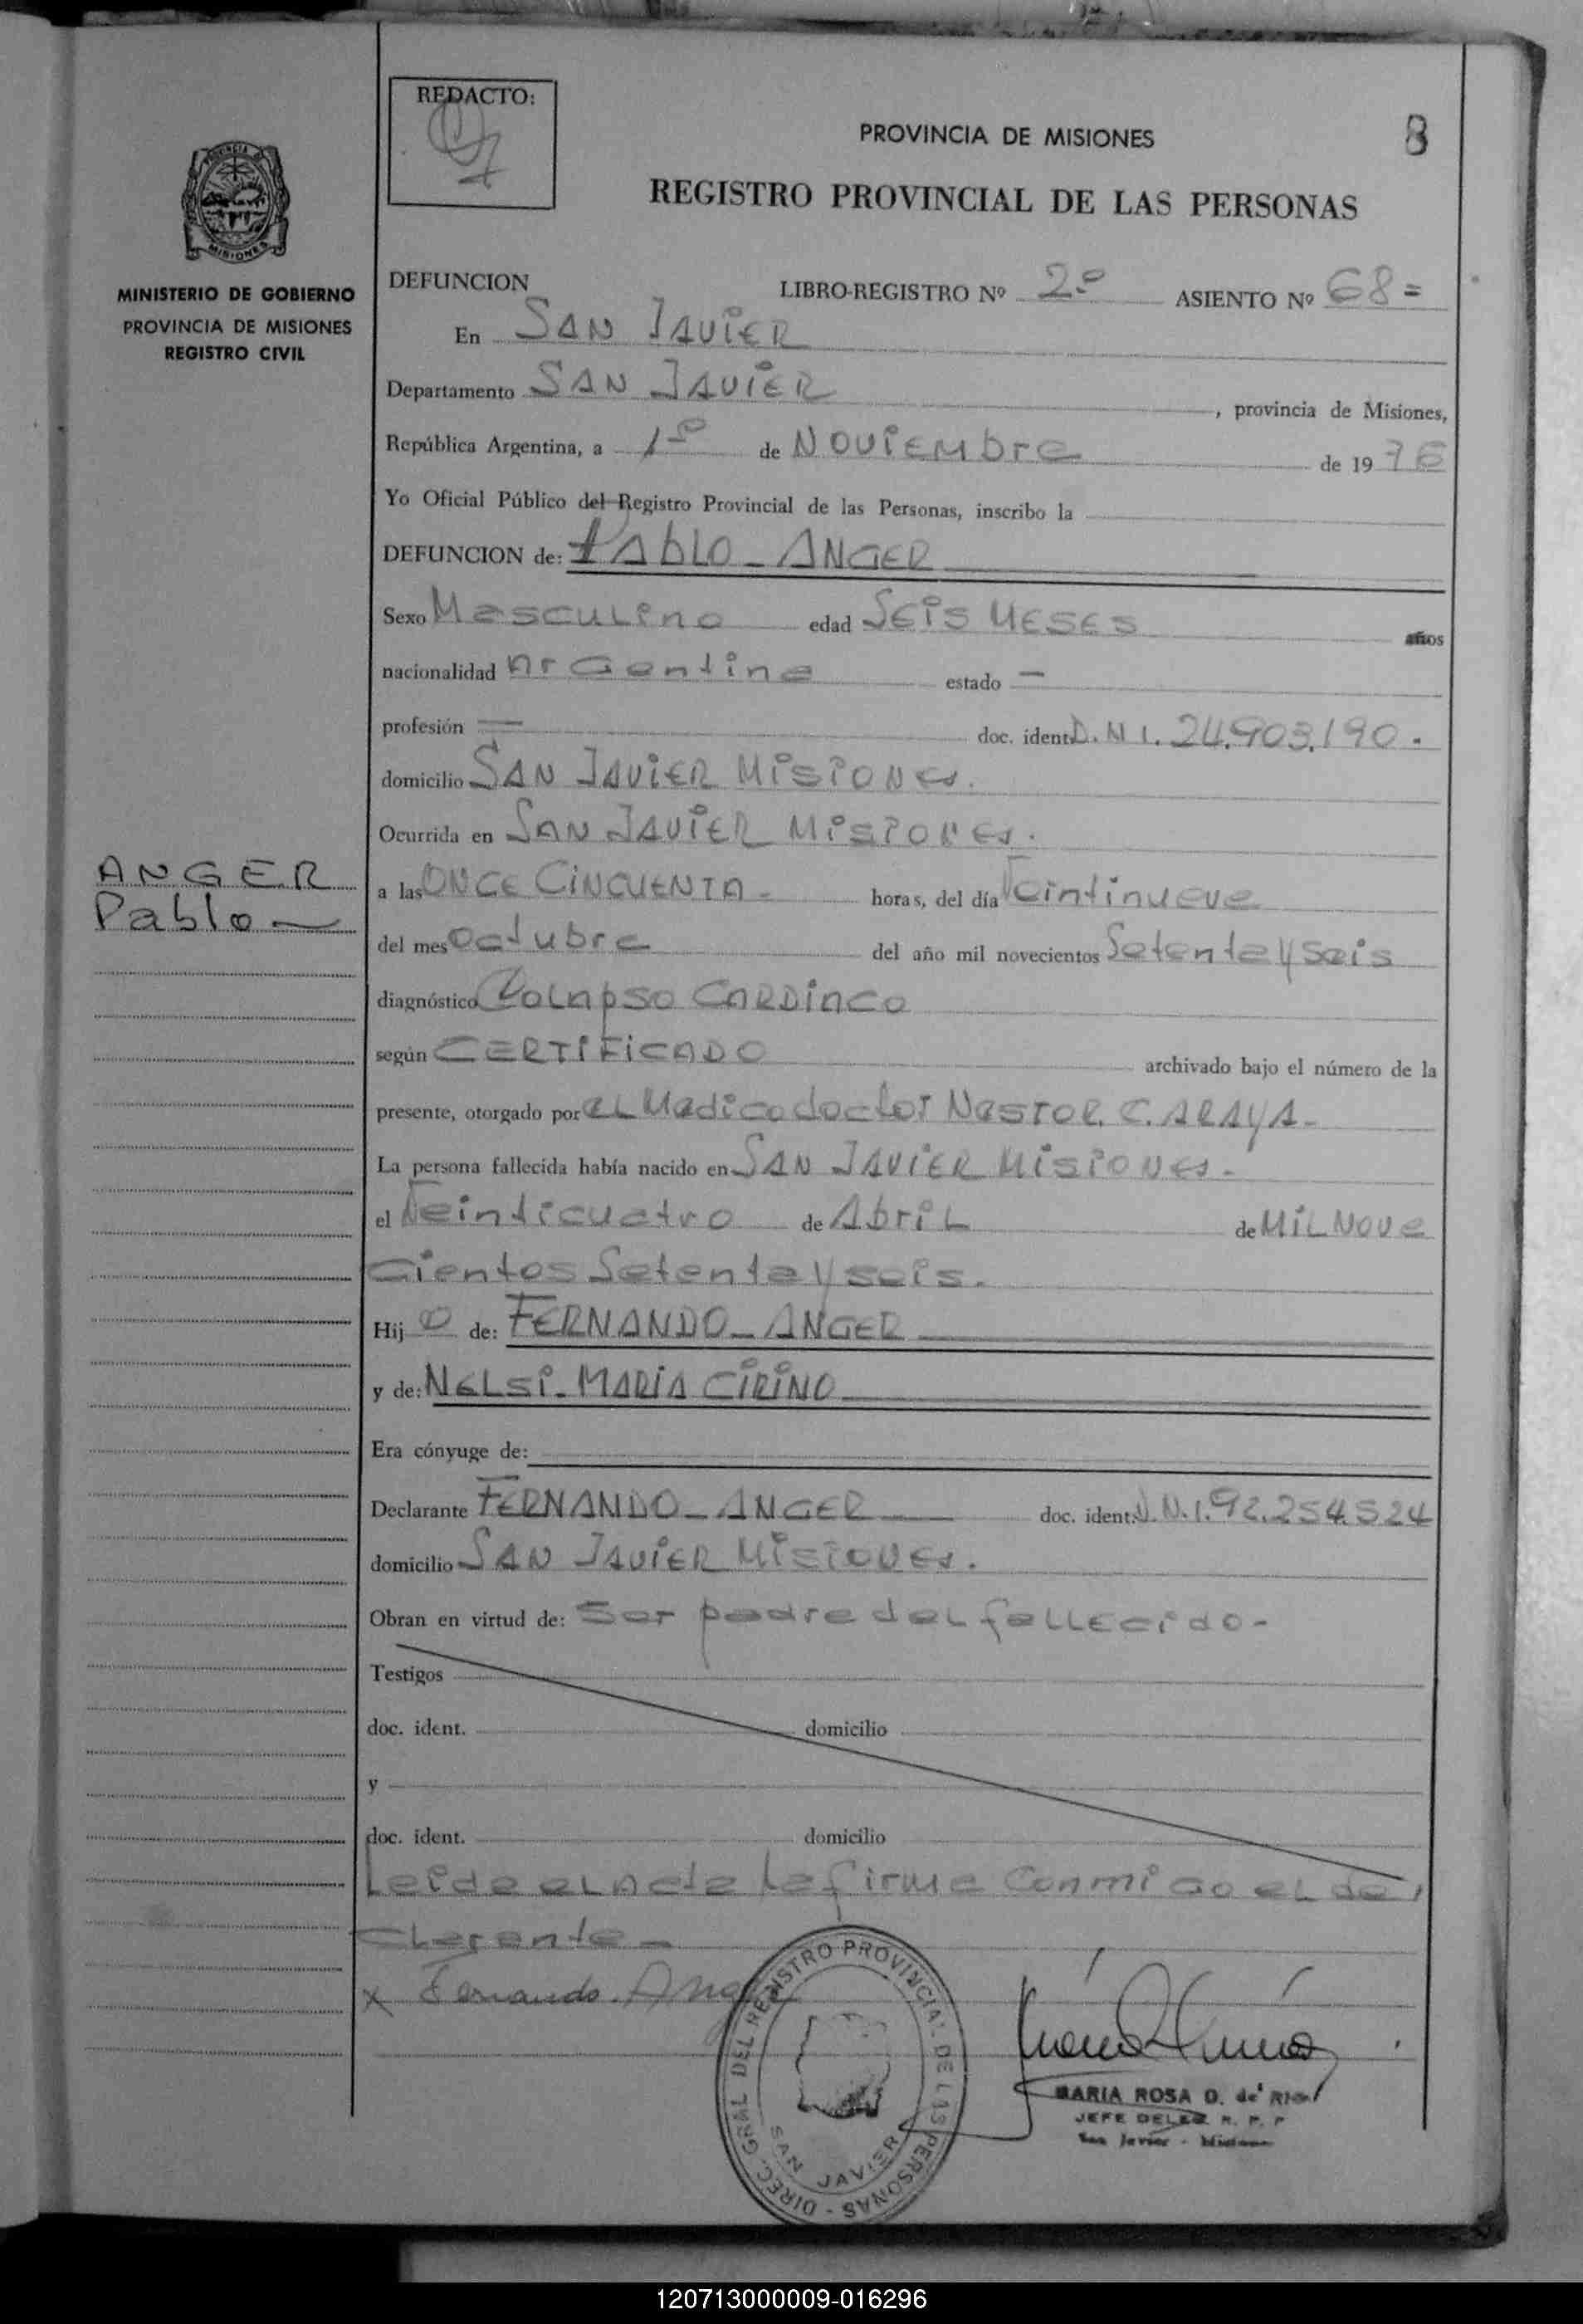 REDACTO:
PROVINCIA DE MISIONES
8
REGISTRO PROVINCIAL DE LAS PERSONAS
MINISTERIO DE GOBIERNO
PROVINCIA DE MISIONES
REGISTRO CIVIL
DEFUNCION LIBRO-REGISTRO Nº 2º ASIENTO Nº 68=
En SAN JAVIER
Departamento SAN JAVIER, provincia de Misiones,
República Argentina, a 1º de NOVIEMbre de 1976
Yo Oficial Público del Registro Provincial de las Personas, inscribo la
DEFUNCION de: PAbLO - ANGER
Sexo Masculino edad SEIS MESES años
nacionalidad Argentina estado —
profesión — doc. ident. D.N I. 24.903.190.
domicilio SAN JAVIER MISIONES.
Ocurrida en SAN JAVIER MISIONES.
ANGER
Pablo
a las ONCE CINCUENTA - horas, del día Veintinueve
del mes Octubre del año mil novecientos Setenta y Seis
diagnóstico COLAPSO CARDIACO
según CERTIFICADO archivado bajo el número de la
presente, otorgado por el Medico doctor Nestor. C. ARAYA-
La persona fallecida había nacido en SAN JAVIER MISIONES-
el Veinticuatro de AbriL de MIL NOVE
Cientos Setenta y seis.
Hijo de: FERNANDO - ANGER
y de: NELSI - MARIA CIRINO
Era cónyuge de:
Declarante FERNANDO - ANGER doc. ident. D.N.I. 92.254.524
domicilio SAN JAVIER MISIONES.
Obran en virtud de: Ser padre del fallecido-
Testigos
doc. ident. domicilio
y
doc. ident. domicilio
Leida el Acta la firma Conmigo el de
clarante -
x Fernando. Anger
DIREC. GRAL DEL REGISTRO PROVINCIAL DE LAS PERSONAS -
SAN JAVIER
MARIA ROSA O. de RIO
JEFE DELEG. R. P. P
San Javier - Misiones
120713000009-016296